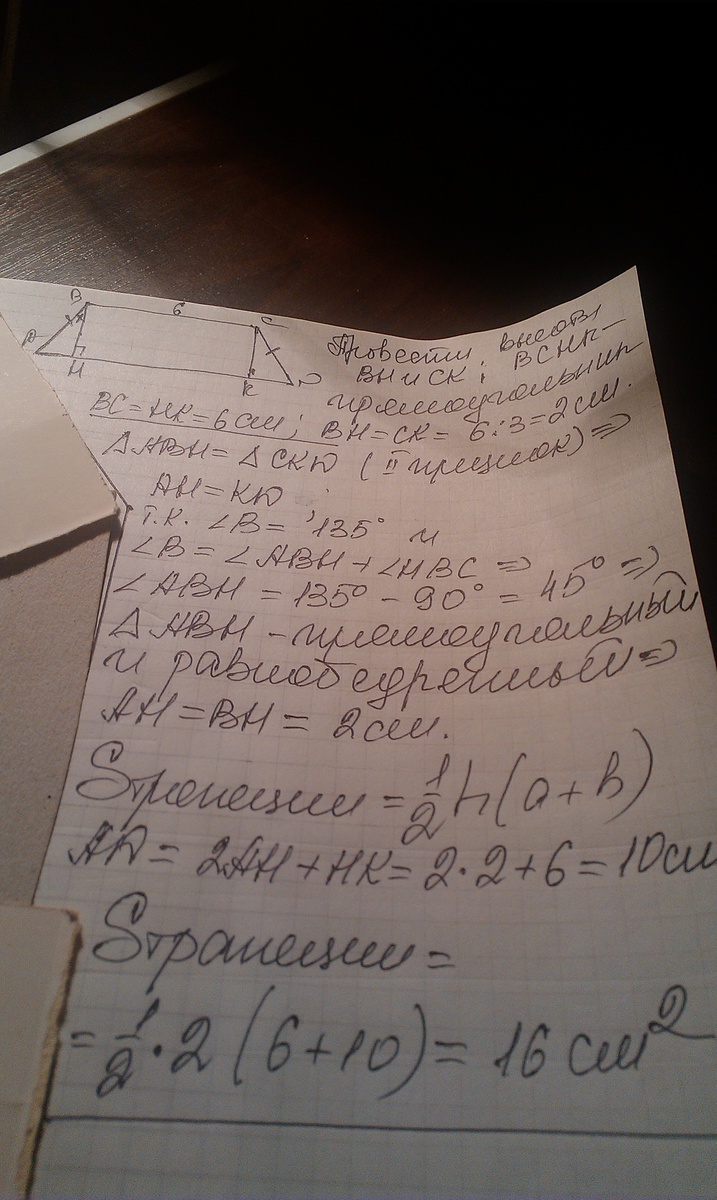 B 6 C
A H K D
Провести высоты
BH и CK; BCHK-
прямоугольник
BC=HK=6см; BH=CK= 6:3=2см.
△ABH=△CKD (II признак) ⇒
AH=KD
Т.К. ∠B=135° и
∠B=∠ABH+∠HBC ⇒
∠ABH=135°-90°=45° ⇒
△ABH-прямоугольный
и равнобедренный ⇒
AH=BH=2см.
Sтрапеции=1/2h(a+b)
AD=2AH+HK=2·2+6=10см
Sтрапеции=
=1/2·2(6+10)=16см²